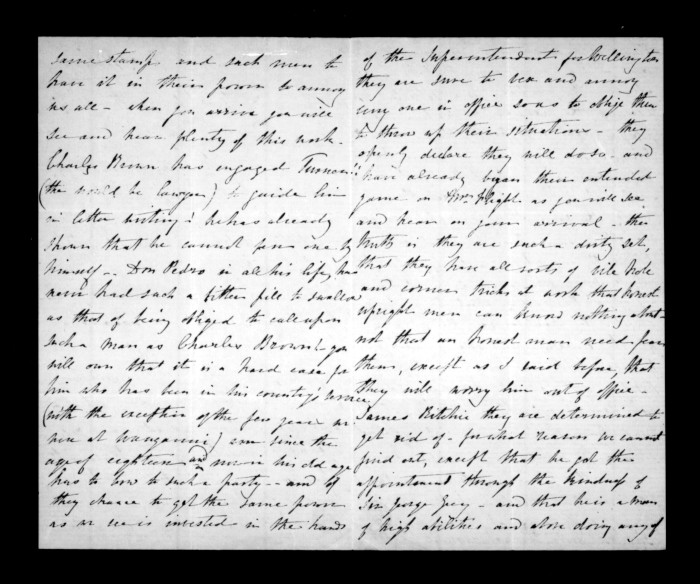 same stamp and such men to
have it in their power to annoy
us all - when you arrive you will
see and hear plenty of this work -
Charles Brown has engaged
(the would be Lawyer) to guide him
in letter writing: he has already
shown that he cannot one by
himself -- Don Pedro in all his life has
never had such a bitter pill to swallow
as that of being obliged to call upon
such a man as Charles Brown & you
will own that it is a hard case for
him who has been in his country's service
(with the exception of the few years we
were at Wanganui) ever since the
age of eighteen and now in his old age
has to bow to such a party -- and if
they chance to get the same power
as is invested in the hands
of the Superintendent for Wellington
they are sure to vex and annoy
every one in office so as to oblige them
to throw up their situations - they
openly declare they will do so - and
have already began their intended
game on Mr Flight as you will see
and hear on your arrival - the
truth is they are such a dirty set,
that they have all sorts of vile hole
and corner tricks at work that honest
upright men can know nothing about -
not that an honest man need fear
them, except as I said before, that
they will worry him out of office -
James Ritchie they are determined to
get rid of - for what reason we cannot
find out, except that he got the
appointment through the kindness of
Sir George Grey - and that he is a man
of high abilities and above doing any of